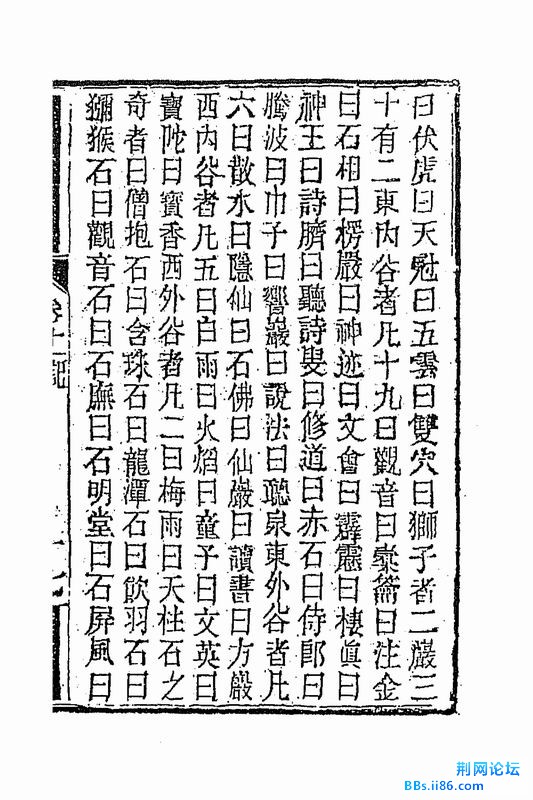 曰伏虎曰天冠曰五雲曰雙穴曰獅子者二巖三
十有二東內谷者凡十九曰觀音曰寮䕃曰注金
曰石相曰楞嚴曰神迹曰文會曰霹靂曰棲眞曰
神王曰詩臍曰聽詩叟曰修道曰赤石曰侍郎曰
騰波曰巾子曰響巖曰說法曰聰泉東外谷者凡
六曰散水曰隱仙曰石佛曰仙巖曰讀書曰方巖
西內谷者凡五曰白雨曰火焰曰童子曰文英曰
寶陀曰寶香西外谷者凡二曰梅雨曰天柱石之
奇者曰僧抱石曰含珠石曰龍潭石曰飲羽石曰
獼猴石曰觀音石曰石廡曰石明堂曰石屏風曰
卷十 記
荆网论坛
BBs.ii86.com